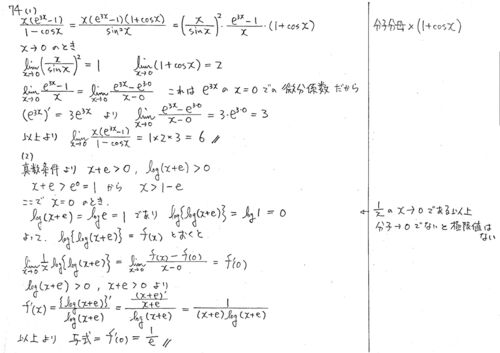 74 (1)
x(e^{3x}-1)/(1-cosx) = x(e^{3x}-1)(1+cosx)/sin²x = (x/sinx)²・(e^{3x}-1)/x・(1+cosx)
分子分母×(1+cosx)
x→0 のとき
lim_{x→0}(x/sinx)² = 1 lim_{x→0}(1+cosx) = 2
lim_{x→0} (e^{3x}-1)/x = lim_{x→0} (e^{3x}-e^{3・0})/(x-0) これは e^{3x} の x=0 での微分係数だから
(e^{3x})' = 3e^{3x} より lim_{x→0} (e^{3x}-e^{3・0})/(x-0) = 3・e^{3・0} = 3
以上より lim_{x→0} x(e^{3x}-1)/(1-cosx) = 1×2×3 = 6 //
(2)
真数条件より x+e>0, log(x+e)>0
x+e>e⁰=1 から x>1-e
ここで x=0 のとき,
log(x+e) = loge = 1 であり log{log(x+e)} = log1 = 0
← 1/x の x→0 である以上
分子→0 でないと極限値は
ない
よって, log{log(x+e)} = f(x) とおくと
lim_{x→0} 1/x log{log(x+e)} = lim_{x→0} (f(x)-f(0))/(x-0) = f'(0)
log(x+e)>0, x+e>0 より
f'(x) = {log(x+e)}'/log(x+e) = ((x+e)'/(x+e))/log(x+e) = 1/((x+e)log(x+e))
以上より 与式 = f'(0) = 1/e //